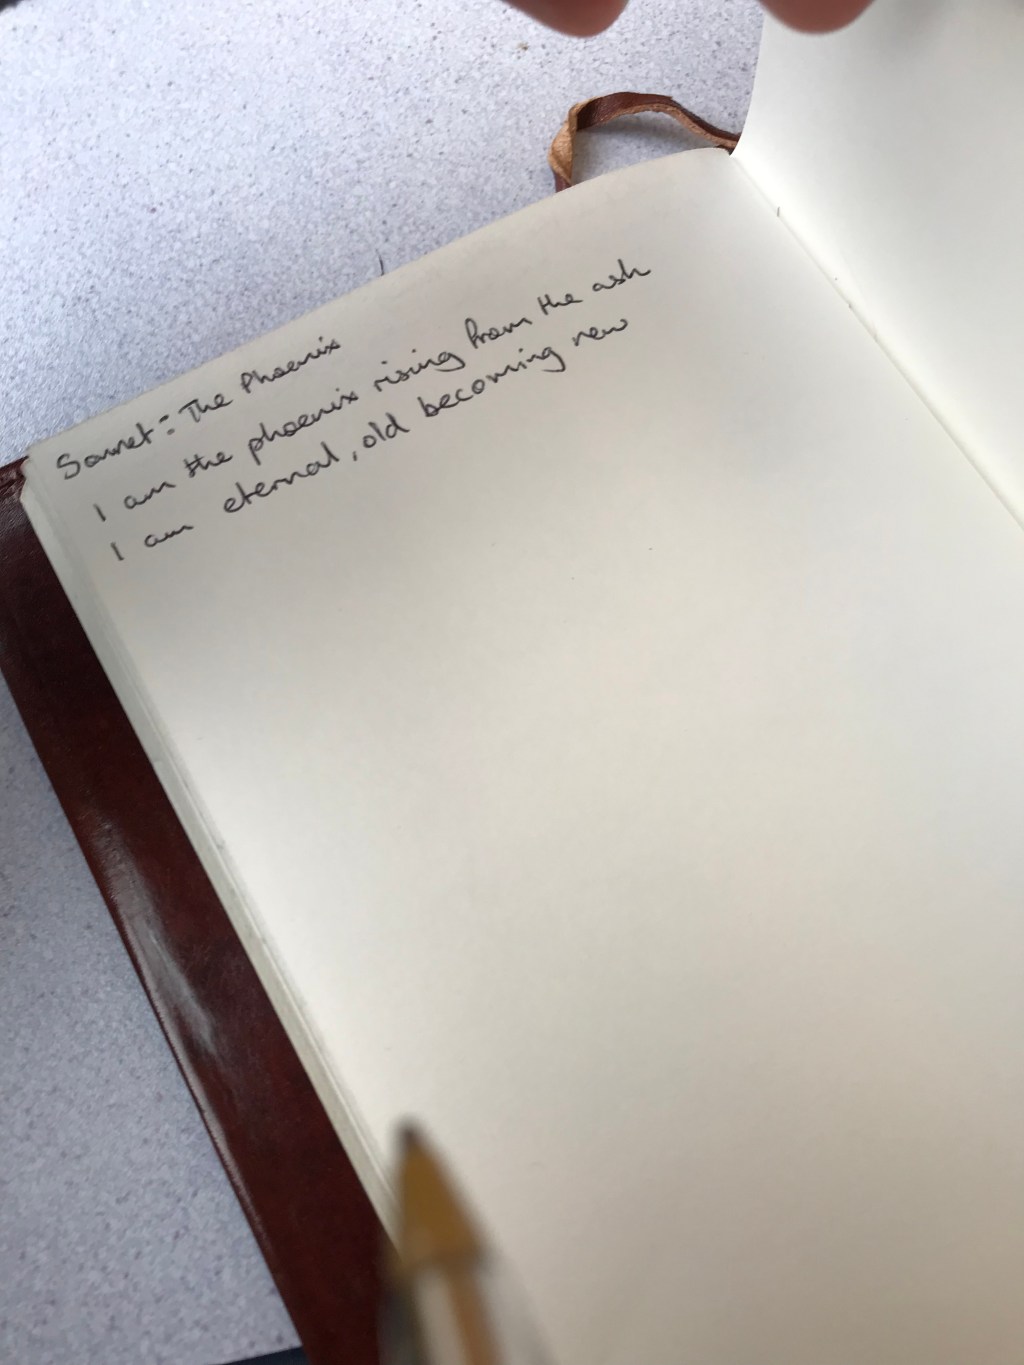 Sonnet: The Phoenix
I am the phoenix rising from the ash
I am eternal, old becoming new